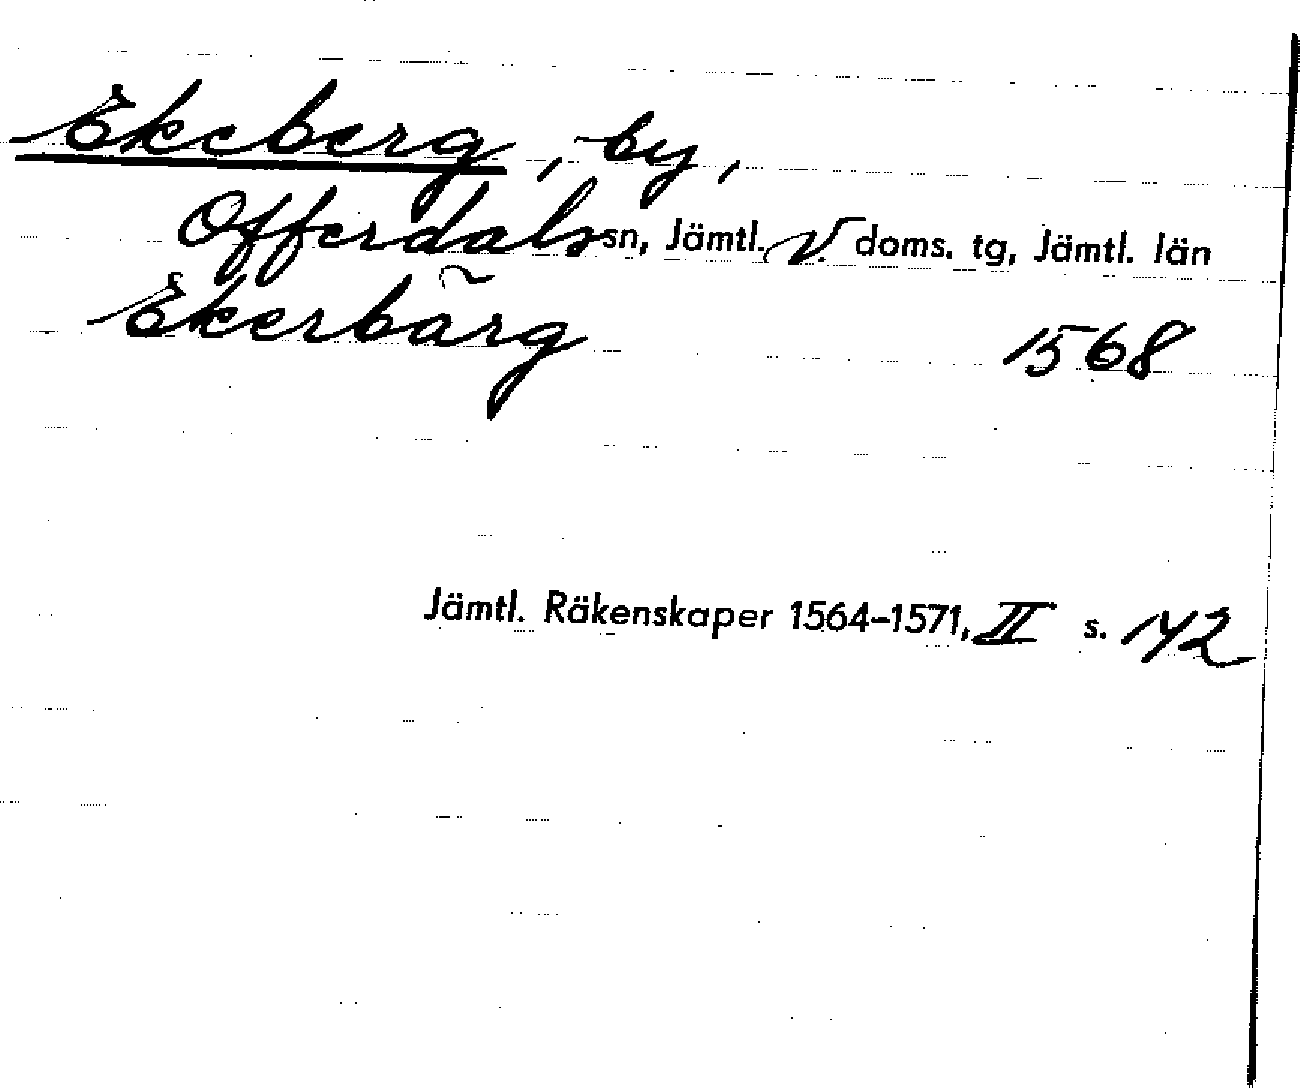 Ekeberg, by,
Offerdals sn, Jämtl. V. doms. tg, Jämtl. län
Ekerbãrg 1568
Jämtl. Räkenskaper 1564–1571, II s. 142